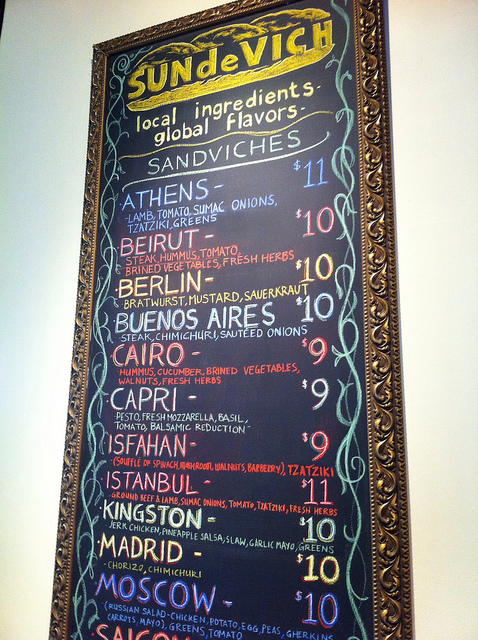 SUNdeVICH
local ingredients.
global flavors.
SANDVICHES
ATHENS - $11
-LAMB, TOMATO, SUMAC ONIONS,
TZATZIKI, GREENS
BEIRUT - $10
STEAK, HUMMUS, TOMATO,
BRINED VEGETABLES, FRESH HERBS
BERLIN - $10
BRATWURST, MUSTARD, SAUERKRAUT
BUENOS AIRES $10
STEAK, CHIMICHURI, SAUTEED ONIONS
CAIRO - $9
HUMMUS, CUCUMBER, BRINED VEGETABLES,
WALNUTS, FRESH HERBS
CAPRI - $9
PESTO, FRESH MOZZARELLA, BASIL,
TOMATO, BALSAMIC REDUCTION
ISFAHAN - $9
(SOUFFLE OF SPINACH, MUSHROOM, WALNUTS, BARBERRY), TZATZIKI
ISTANBUL - $11
GROUND BEEF & LAMB, SUMAC ONIONS, TOMATO, TZATZIKI, FRESH HERBS
KINGSTON - $10
JERK CHICKEN, PINEAPPLE SALSA, SLAW, GARLIC MAYO, GREENS
MADRID - $10
-CHORIZO, CHIMICHURI
MOSCOW - $10
(RUSSIAN SALAD-CHICKEN, POTATO, EGG, PEAS, GHERKINS
CARROTS, MAYO), GREENS, TOMATO